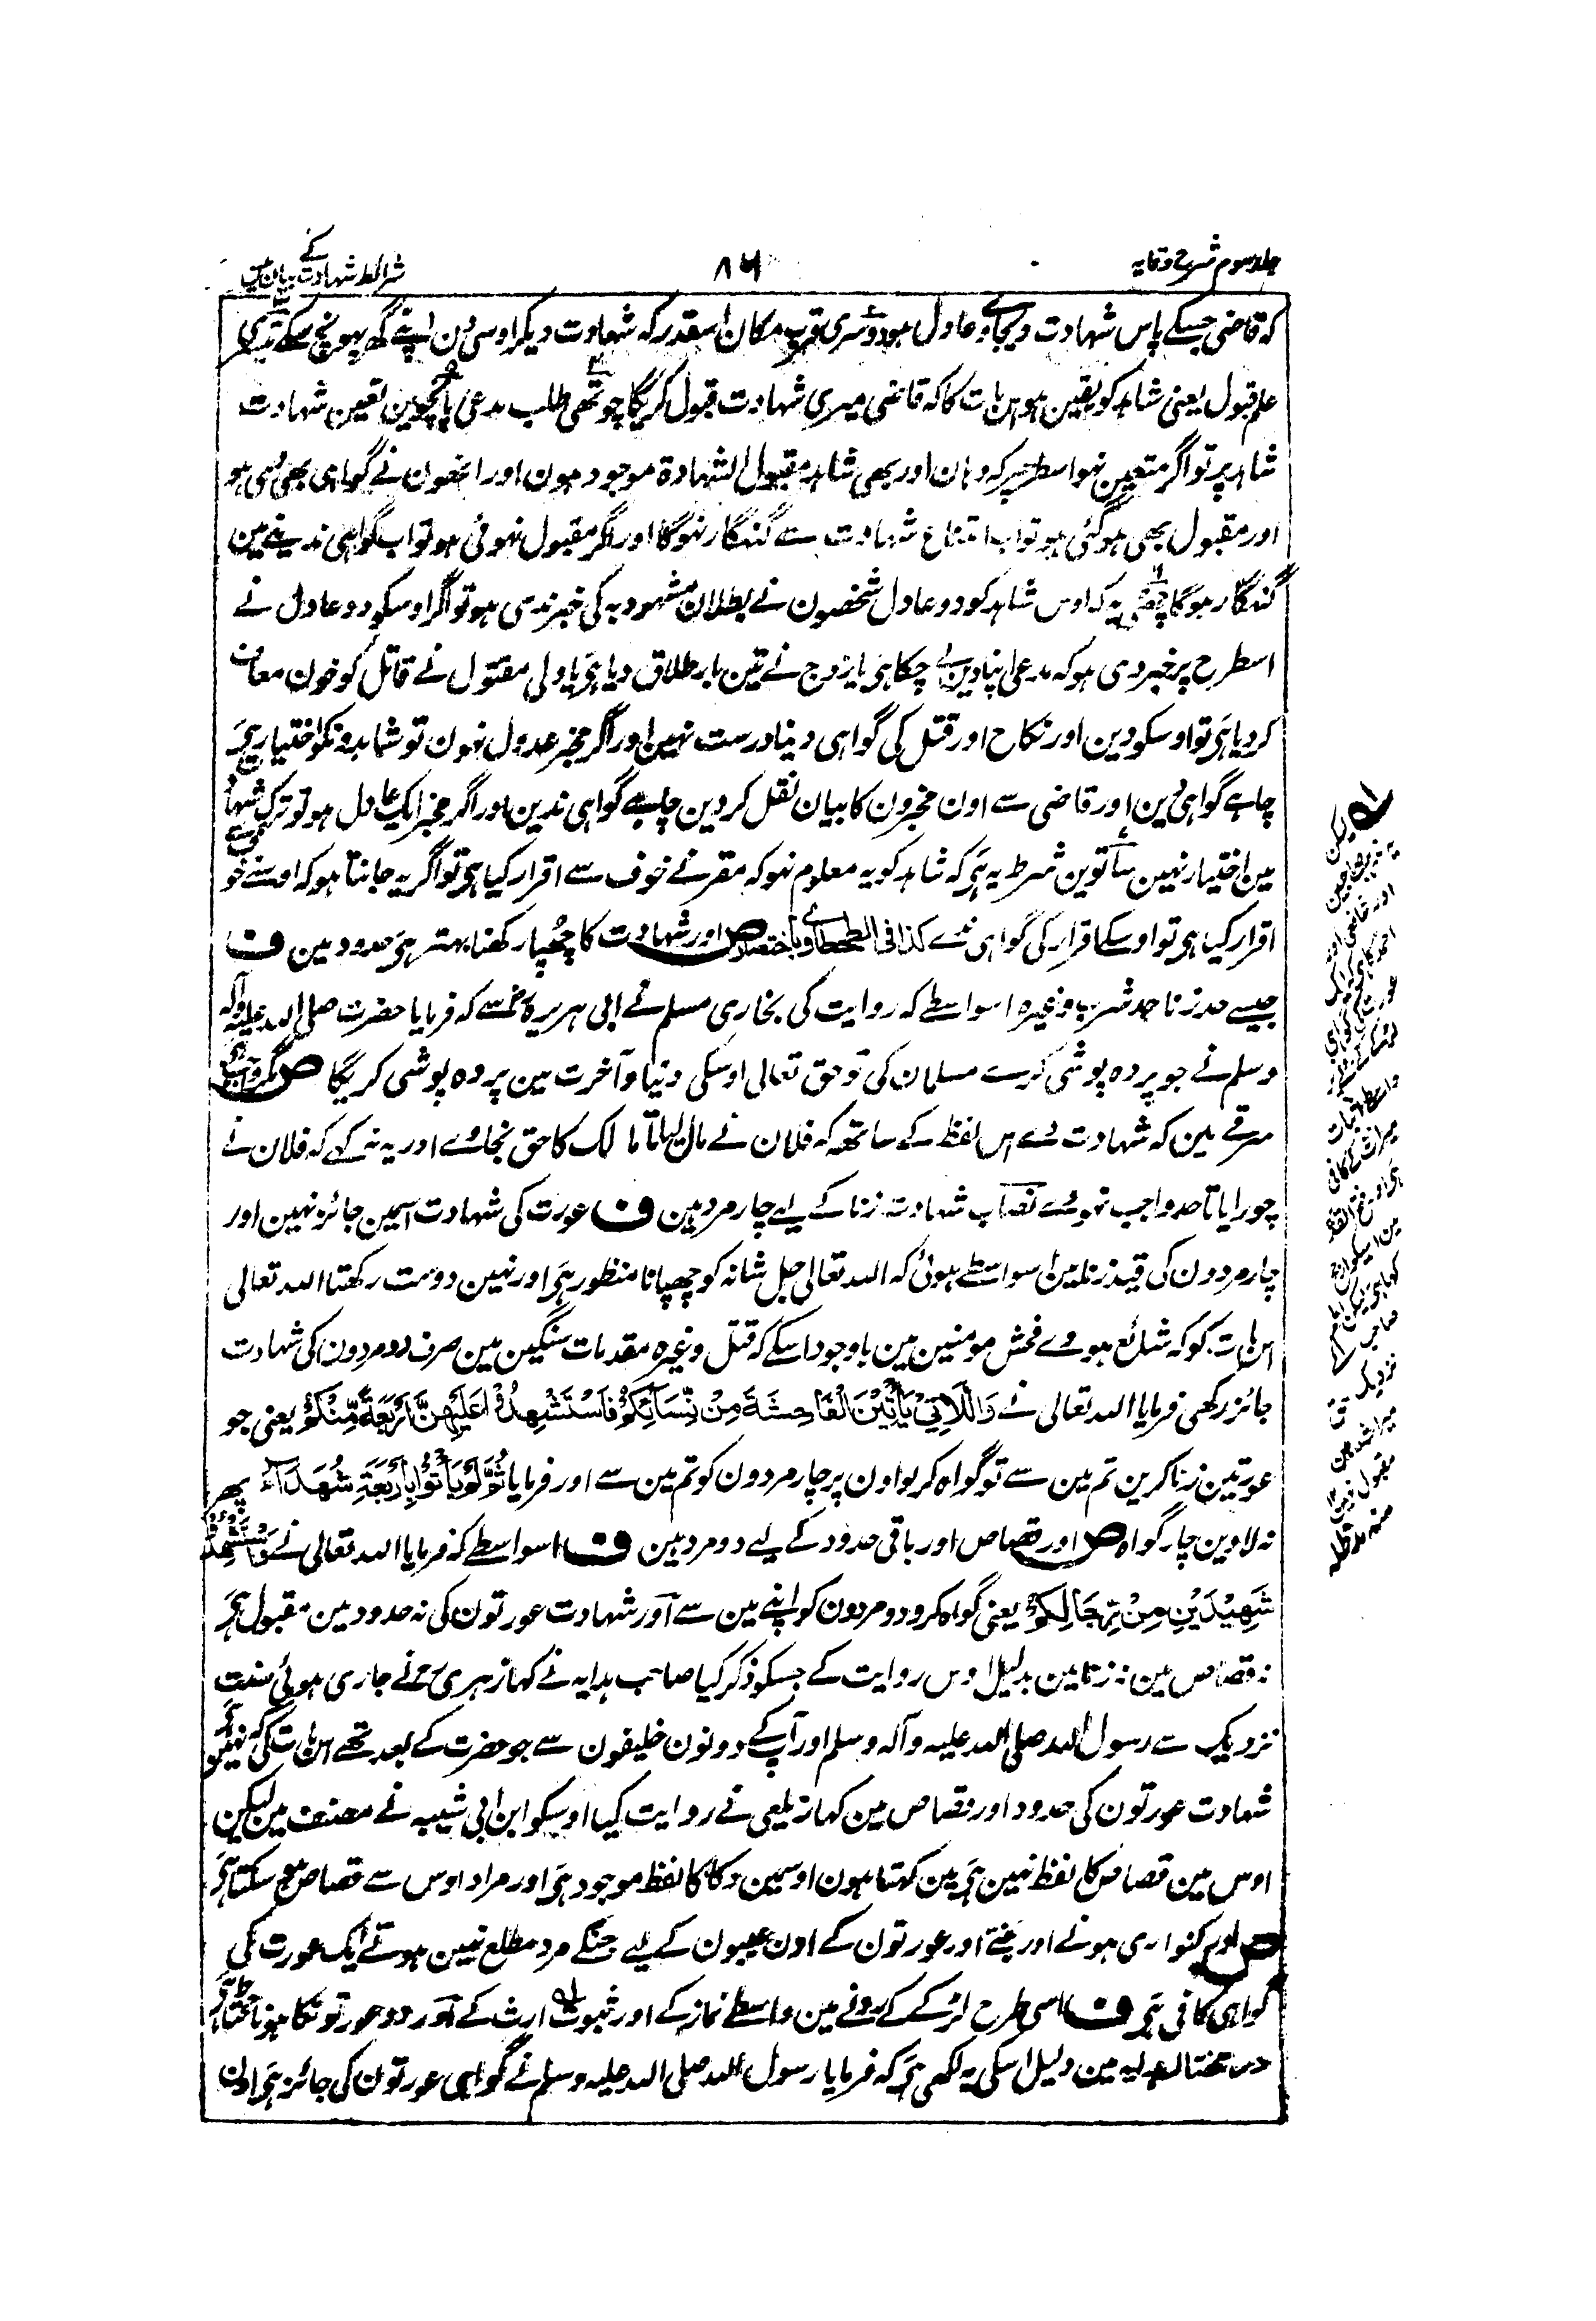 جلد سوم شرح وقایہ
۸۶
شرائط شہادت کے بیان مین
کہ قاضی جسکے پاس شہادت دیجاے وہ عادل ہو دوسری قرب مکان اسقدر کہ شہادت دیکر اوسی دن اپنے گھر پہونچ سکے تیسری
علم قبول یعنی شاہد کو یقین ہو اس بات کا کہ قاضی میری شہادت قبول کریگا چوتھی طلب مدعی پانچوین تعین شہادت
شاہد پر تو اگر متعین نہو اسطرحپر کہ وہان اور بھی شاہد مقبول الشہادۃ موجود ہون اور انھون نے گواہی بھی دی ہو
اور مقبول بھی ہو گئی ہو تو اب امتناع شہادت سے گنہگار نہوگا اور اگر مقبول نہوئی ہو تو اب گواہی ندینے مین
گنہگار ہوگا چھٹی یہ کہ اوس شاہد کو دو عادل شخصون نے بطلان مشہود بہ کی خبر ندی ہو تو اگر اوسکو دو عادل نے
اسطرح پر خبر دی ہو کہ مدعی اپنا دین لے چکا ہی یا زوج نے تین بار طلاق دیا ہی یا ولی مقتول نے قاتل کو خون معاف
کر دیا ہی تو اوسکو دین اور نکاح اور قتل کی گواہی دینا درست نہین اور اگر مخبر عدول نہون تو شاہد ونکو اختیار ہی
چاہے گواہی دین اور قاضی سے اون مخبرون کا بیان نقل کر دین چاہے گواہی ندین اور اگر مخبر ایک عادل ہو تو ترک شہادت
مین اختیار نہین ساتوین شرط یہ ہی کہ شاہد کو یہ معلوم نہو کہ مقر نے خوف سے اقرار کیا ہی تو اگر یہ جانتا ہو کہ اوسنے خوف سے
اقرار کیا ہی تو اوسکے اقرار کی گواہی ندے کذا فی الطحطاوی باختصار ص اور شہادت کا چھپا رکھنا بہتر ہی حدود مین ف
جیسے حد زنا حد شرب وغیرہ اسواسطے کہ روایت کی بخاری مسلم نے ابی ہریرہؓ سے کہ فرمایا حضرت صلی اللہ علیہ وآلہ
وسلم نے جو پردہ پوشی کرے مسلمان کی تو حق تعالی اوسکی دنیا و آخرت مین پردہ پوشی کریگا ص مگر واجب ہی
سرقے مین کہ شہادت دے اس لفظ کے ساتھ کہ فلان نے مال لیا تا مالک کا حق نجاوے اور یہ نہ کہے کہ فلان نے
چورایا تا حد واجب نہووے نصاب شہادت زنا کے لیے چار مرد ہین ف عورت کی شہادت اسمین جائز نہین اور
چار مردون کی قید زنا مین اسواسطے ہوئی کہ اللہ تعالی جل شانہ کو چھپانا منظور ہی اور نہین دوست رکھتا اللہ تعالی
اس بات کو کہ شائع ہووے فحش مومنین مین باوجود اسکے کہ قتل وغیرہ مقدمات سنگین مین صرف دو مردون کی شہادت
جائز رکھی فرمایا اللہ تعالی نے وَاللَّاتِیْ یَأْتِیْنَ الْفَاحِشَةَ مِنْ نِّسَآئِکُمْ فَاسْتَشْهِدُوْا عَلَیْهِنَّ اَرْبَعَةً مِّنْکُمْ یعنی جو
عورتین زنا کرین تم مین سے تو گواہ کر لو اون پر چار مردون کو تم مین سے اور فرمایا ثُمَّ لَمْ یَأْتُوْا بِاَرْبَعَةِ شُهَدَآءَ پھر
نہ لاوین چار گواہ ص اور قصاص اور باقی حدود کے لیے دو مرد ہین ف اسواسطے کہ فرمایا اللہ تعالی نے وَاسْتَشْهِدُوْا
شَهِیْدَیْنِ مِنْ رِّجَالِکُمْ یعنی گواہ کرو دو مردون کو اپنے مین سے اور شہادت عورتون کی نہ حدود مین مقبول ہی
نہ قصاص مین نہ زنا مین بدلیل اوس روایت کے جسکو ذکر کیا صاحب ہدایہ نے کہا زہریؒ نے جاری ہوئی سنت
نزدیک سے رسول اللہ صلی اللہ علیہ وآلہ وسلم اور آپ کے دونون خلیفون سے جو حضرت کے بعد تھے اس بات کی کہ نہین ہی
شہادت عورتون کی حدود اور قصاص مین کہا زیلعی نے روایت کیا اوسکو ابن ابی شیبہ نے مصنف مین لیکن
اوس مین قصاص کا لفظ نہین ہی مین کہتا ہون اوسمین دکا کا لفظ موجود ہی اور مراد اوس سے قصاص ہو سکتا ہی
ص اور کنواری ہونے اور جننے اور عورتون کے اون عیبون کے لیے جنکے مرد مطلع نہین ہوتے ایک عورت کی
گواہی کافی ہی ف اسی طرح لڑکے کے رونے مین واسطے نماز کے اور ثبوت ارث کے اور دو عورتونکا ہونا
در مختار ہدایہ مین دلیل اسکی یہ لکھی ہی کہ فرمایا رسول اللہ صلی اللہ علیہ وسلم نے گواہی عورتون کی جائز ہی اون
لیکن
اور
عورت کی گواہی
واسطے
میراث کے کافی
ہی اور فتح القدیر
مین اسکو راجح
کہا ہی لیکن امام
صاحب کے
نزدیک
میراث مین
مقبول نہین
منہ مد ظلہ